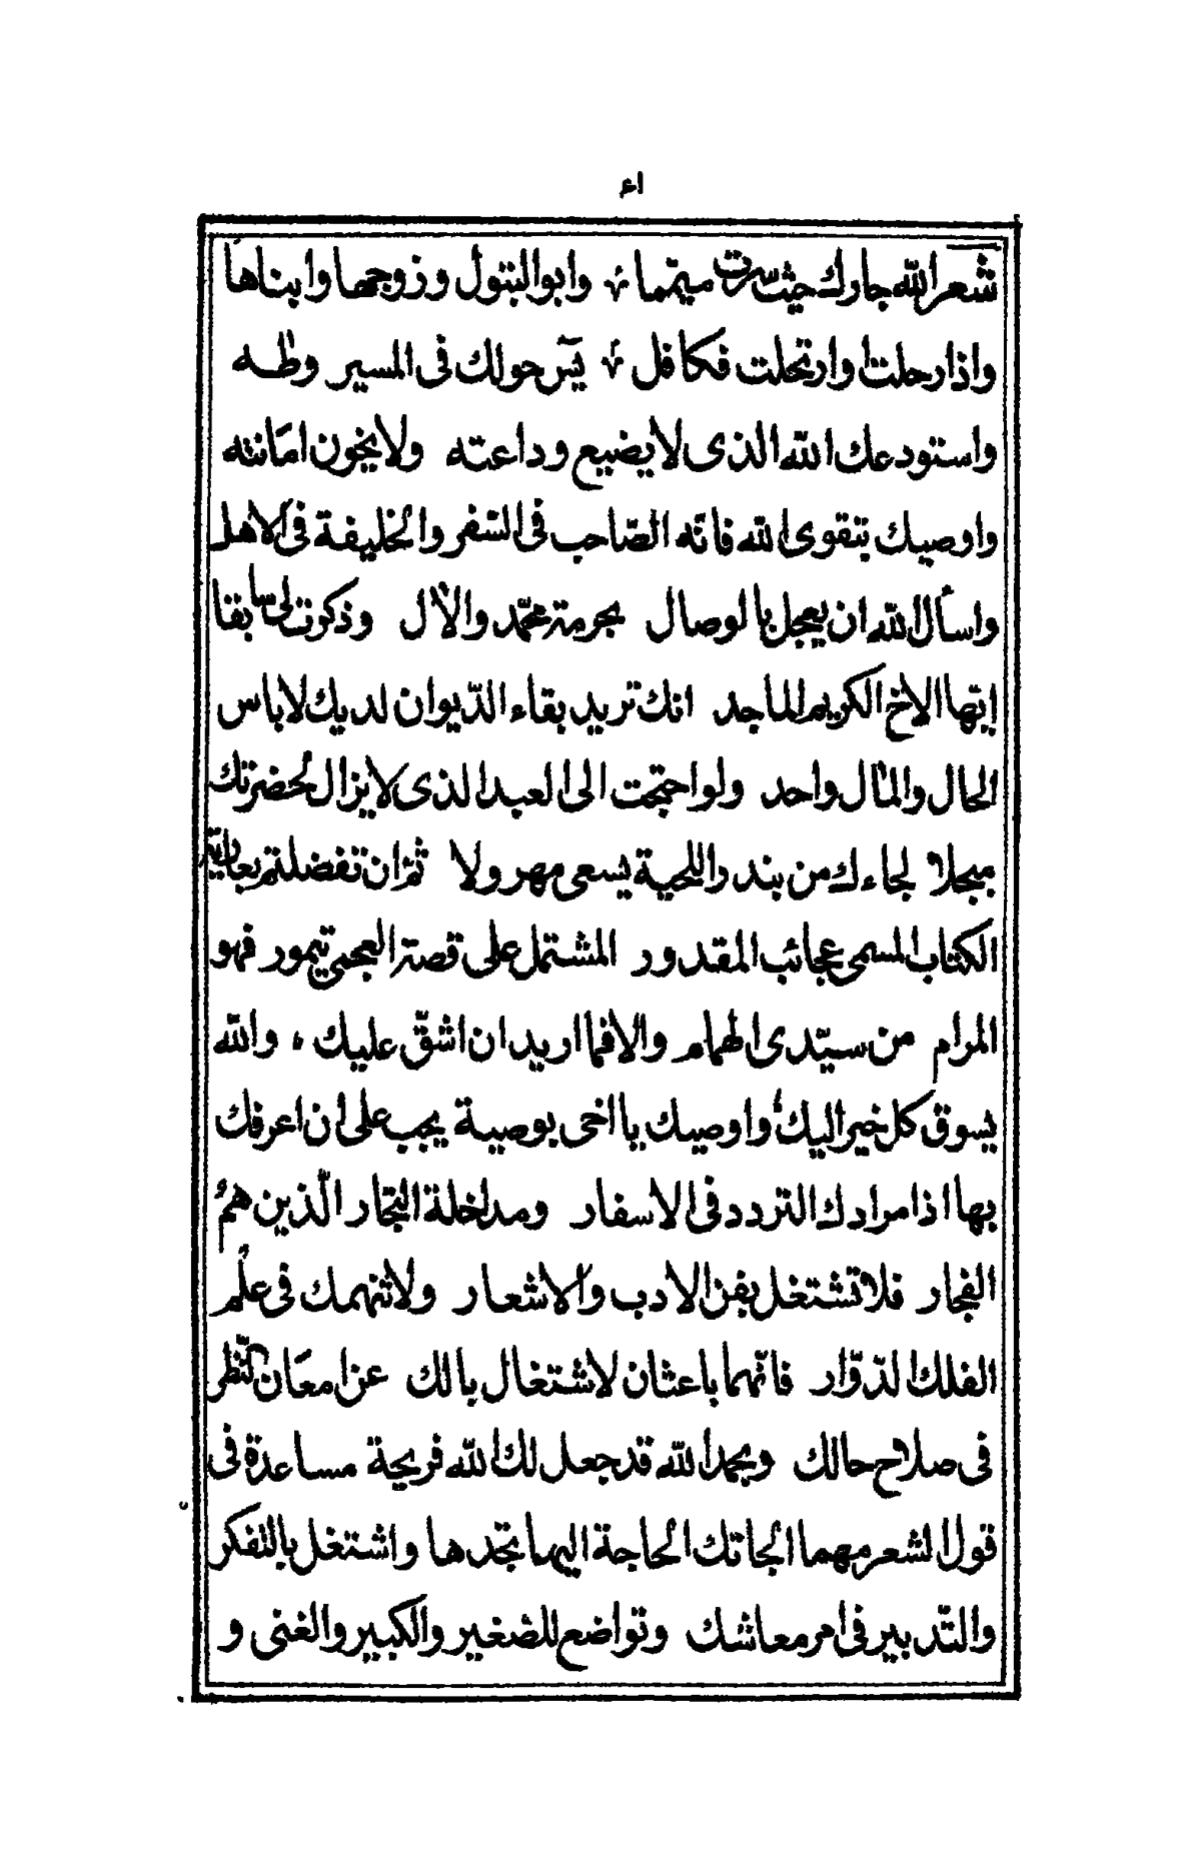 ١٤
شعر الله جارك حيث سرت ميمما ؛ وابو البتول وزوجها وابناها
واذا رحلت وارتحلت فكافل ؛ يٰسٓ حولك فى المسير وطٰـه
واستودعك الله الذى لا يضيع وداعته ولا يخون امانته
واوصيك بتقوى الله فانّه الصّاحب فى السّفر والخليفة فى الاهل
واسأل الله ان يعجل بالوصال بحرمة محمّد والأل وذكرت لى سابقا
ايّها الاخ الكريم الماجد انك تريد بقاء الدّيوان لديك لاباس
الحال والمال واحد ولو احتجت الى العبد الذى لا يزال لحضرتك
مبجلا لجاءك من بندر اللحية يسعى مهرولا ثم ان تفضلتم بعارية
الكتاب المسمى عجائب المقدور المشتمل على قصة العجمى تيمور فهو
المرام من سيّدى الهمام والا فما اريد ان اشقّ عليك ، والله
يسوق كل خير اليك واوصيك يا اخى بوصية يجب على ان اعرفك
بها اذا مرادك التردد فى الاسفار ومداخلة التجار الّذين هم
الفجار فلا تشتغل بفن الادب والاشعار ولا تنهمك فى علم
الفلك الدّوّار فانّهما باعثان لاشتغال بالك عن امعان النّظر
فى صلاح حالك وبحمد الله قد جعل لك الله قريحة مساعدة فى
قول الشعر مهما الجاتك الحاجة اليها تجدها واشتغل بالتفكر
والتّدبير فى امر معاشك وتواضع للصغير والكبير والغنى و